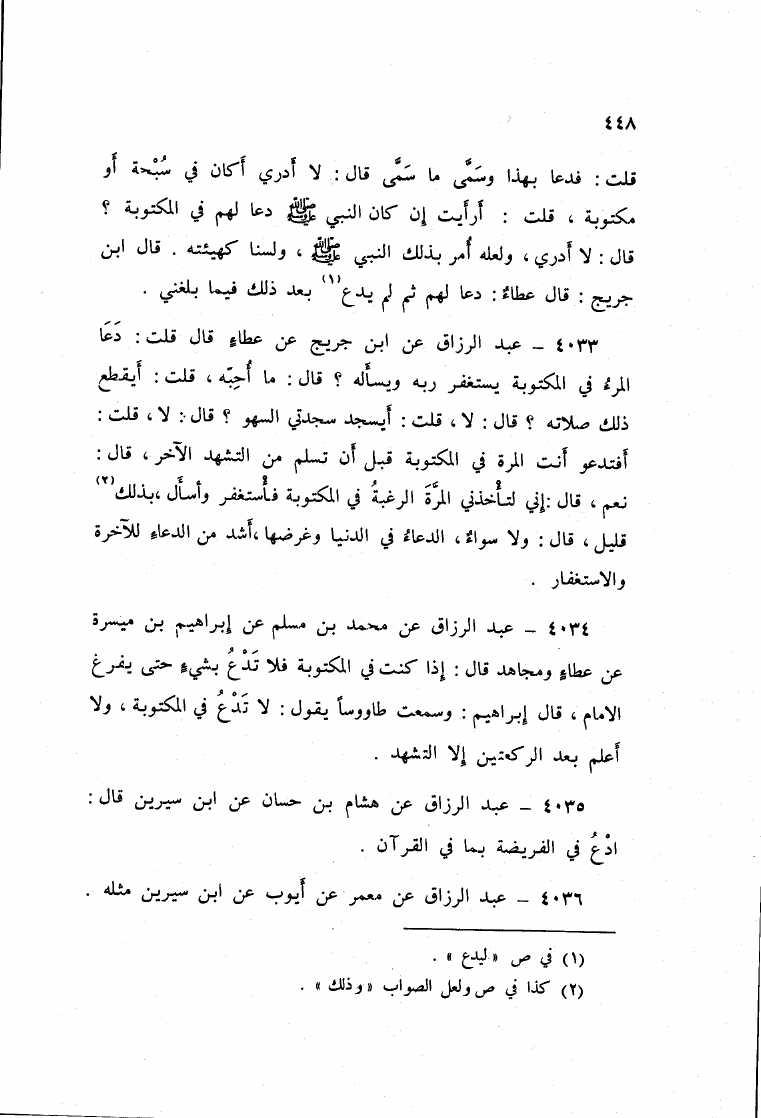 ٤٤٨
قلت : فدعا بهذا وسَمَّى ما سَمَّى قال : لا أدري أكان في سُبْحة أو
مكتوبة ، قلت : أرأيت إن كان النبي ﷺ دعا لهم في المكتوبة ؟
قال : لا أدري ، ولعله أُمر بذلك النبي ﷺ ، ولسنا كهيئته . قال ابن
جريج : قال عطاءٌ : دعا لهم ثم لم يدع(١) بعد ذلك فيما بلغني .
٤٠٣٣ – عبد الرزاق عن ابن جريج عن عطاءٍ قال قلت : دَعَا
المرءُ في المكتوبة يستغفر ربه ويسأَله ؟ قال : ما أُحِبّه ، قلت : أَيقطع
ذلك صلاته ؟ قال : لا ، قلت : أَيسجد سجدتي السهو ؟ قال : لا ، قلت :
أفتدعو أنت المرة في المكتوبة قبل أن تسلم من التشهد الآخر ، قال :
نعم ، قال : إني لتأْخذني المَرَّةَ الرغبةُ في المكتوبة فأَستغفر وأسأَل ، بذلك(٢)
قليل ، قال : ولا سواءٌ ، الدعاءُ في الدنيا وغرضها ، أَشد من الدعاءِ للآخرة
والاستغفار .
٤٠٣٤ – عبد الرزاق عن محمد بن مسلم عن إبراهيم بن ميسرة
عن عطاءٍ ومجاهد قال : إذا كنت في المكتوبة فلا تَدْعُ بشيءٍ حتى يفرغ
الامام ، قال إبراهيم : وسمعت طاووساً يقول : لا تَدْعُ في المكتوبة ، ولا
أعلم بعد الركعتين إلا التشهد .
٤٠٣٥ – عبد الرزاق عن هشام بن حسان عن ابن سيرين قال :
ادْعُ في الفريضة بما في القرآن .
٤٠٣٦ – عبد الرزاق عن معمر عن أيوب عن ابن سيرين مثله .
(١) في ص « ليدع » .
(٢) كذا في ص ولعل الصواب « وذلك » .